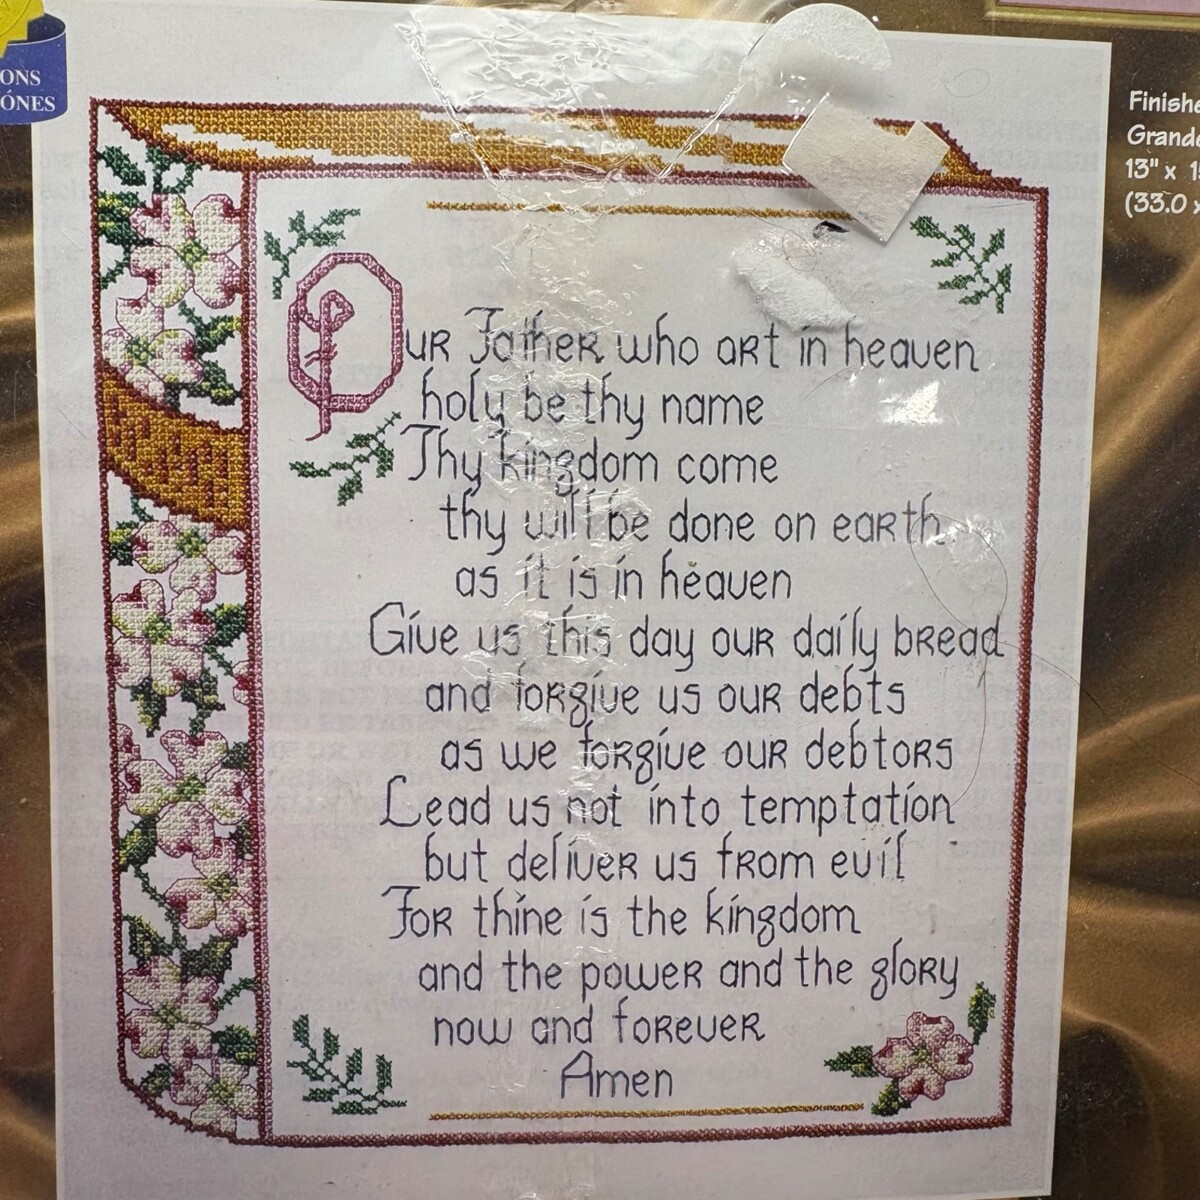 ONS
ÓNES
Finishe
Grande
13" x 1
(33.0 x
Our Father who art in heaven
holy be thy name
Thy kingdom come
thy will be done on earth
as it is in heaven
Give us this day our daily bread
and forgive us our debts
as we forgive our debtors
Lead us not into temptation
but deliver us from evil
For thine is the kingdom
and the power and the glory
now and forever
Amen